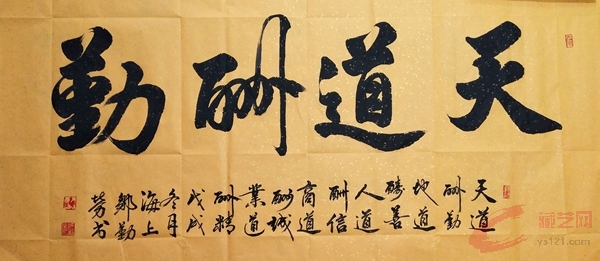 天道酬勤
天道
酬勤
地道
酬善
人道
酬信
商道
酬诚
業道
酬精
戊戌
冬月
海上
勤
书
藏艺网
ys121.com